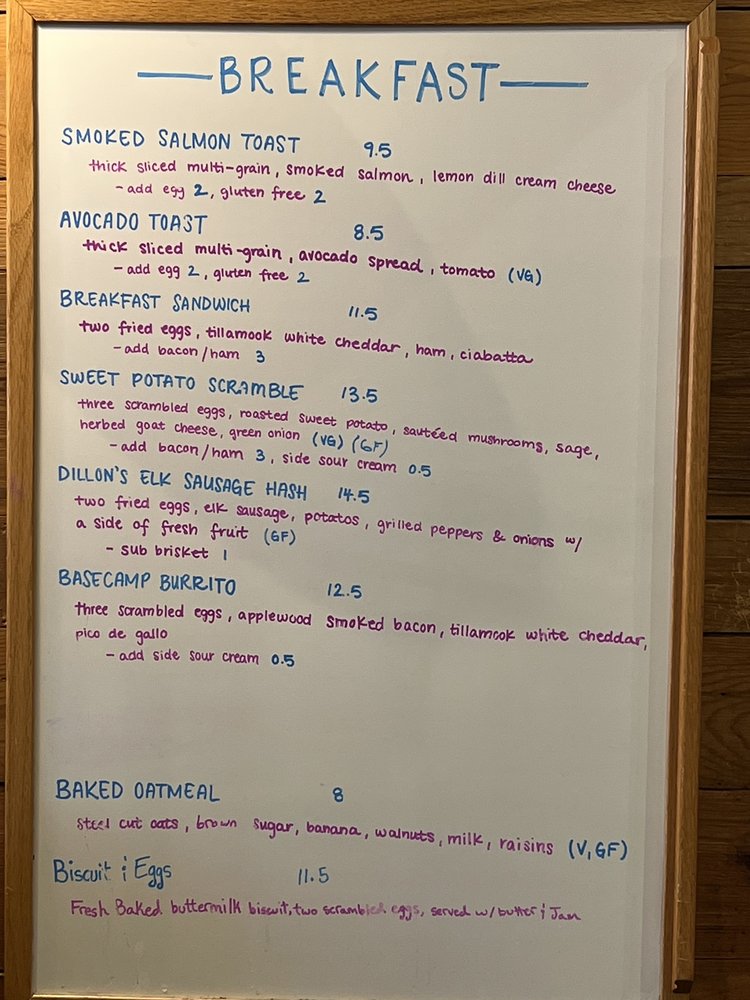 BREAKFAST
SMOKED SALMON TOAST 9.5
thick sliced multi-grain, smoked salmon, lemon dill cream cheese
- add egg 2, gluten free 2
AVOCADO TOAST 8.5
thick sliced multi-grain, avocado spread, tomato (VG)
- add egg 2, gluten free 2
BREAKFAST SANDWICH 11.5
two fried eggs, tillamook white cheddar, ham, ciabatta
- add bacon/ham 3
SWEET POTATO SCRAMBLE 13.5
three scrambled eggs, roasted sweet potato, sautéed mushrooms, sage,
herbed goat cheese, green onion (VG) (GF)
- add bacon/ham 3, side sour cream 0.5
DILLON'S ELK SAUSAGE HASH 14.5
two fried eggs, elk sausage, potatos, grilled peppers & onions w/
a side of fresh fruit (GF)
- sub brisket 1
BASECAMP BURRITO 12.5
three scrambled eggs, applewood smoked bacon, tillamook white cheddar,
pico de gallo
- add side sour cream 0.5
BAKED OATMEAL 8
steel cut oats, brown sugar, banana, walnuts, milk, raisins (V, GF)
Biscuit & Eggs 11.5
Fresh Baked buttermilk biscuit, two scrambled eggs, served w/ butter & Jam